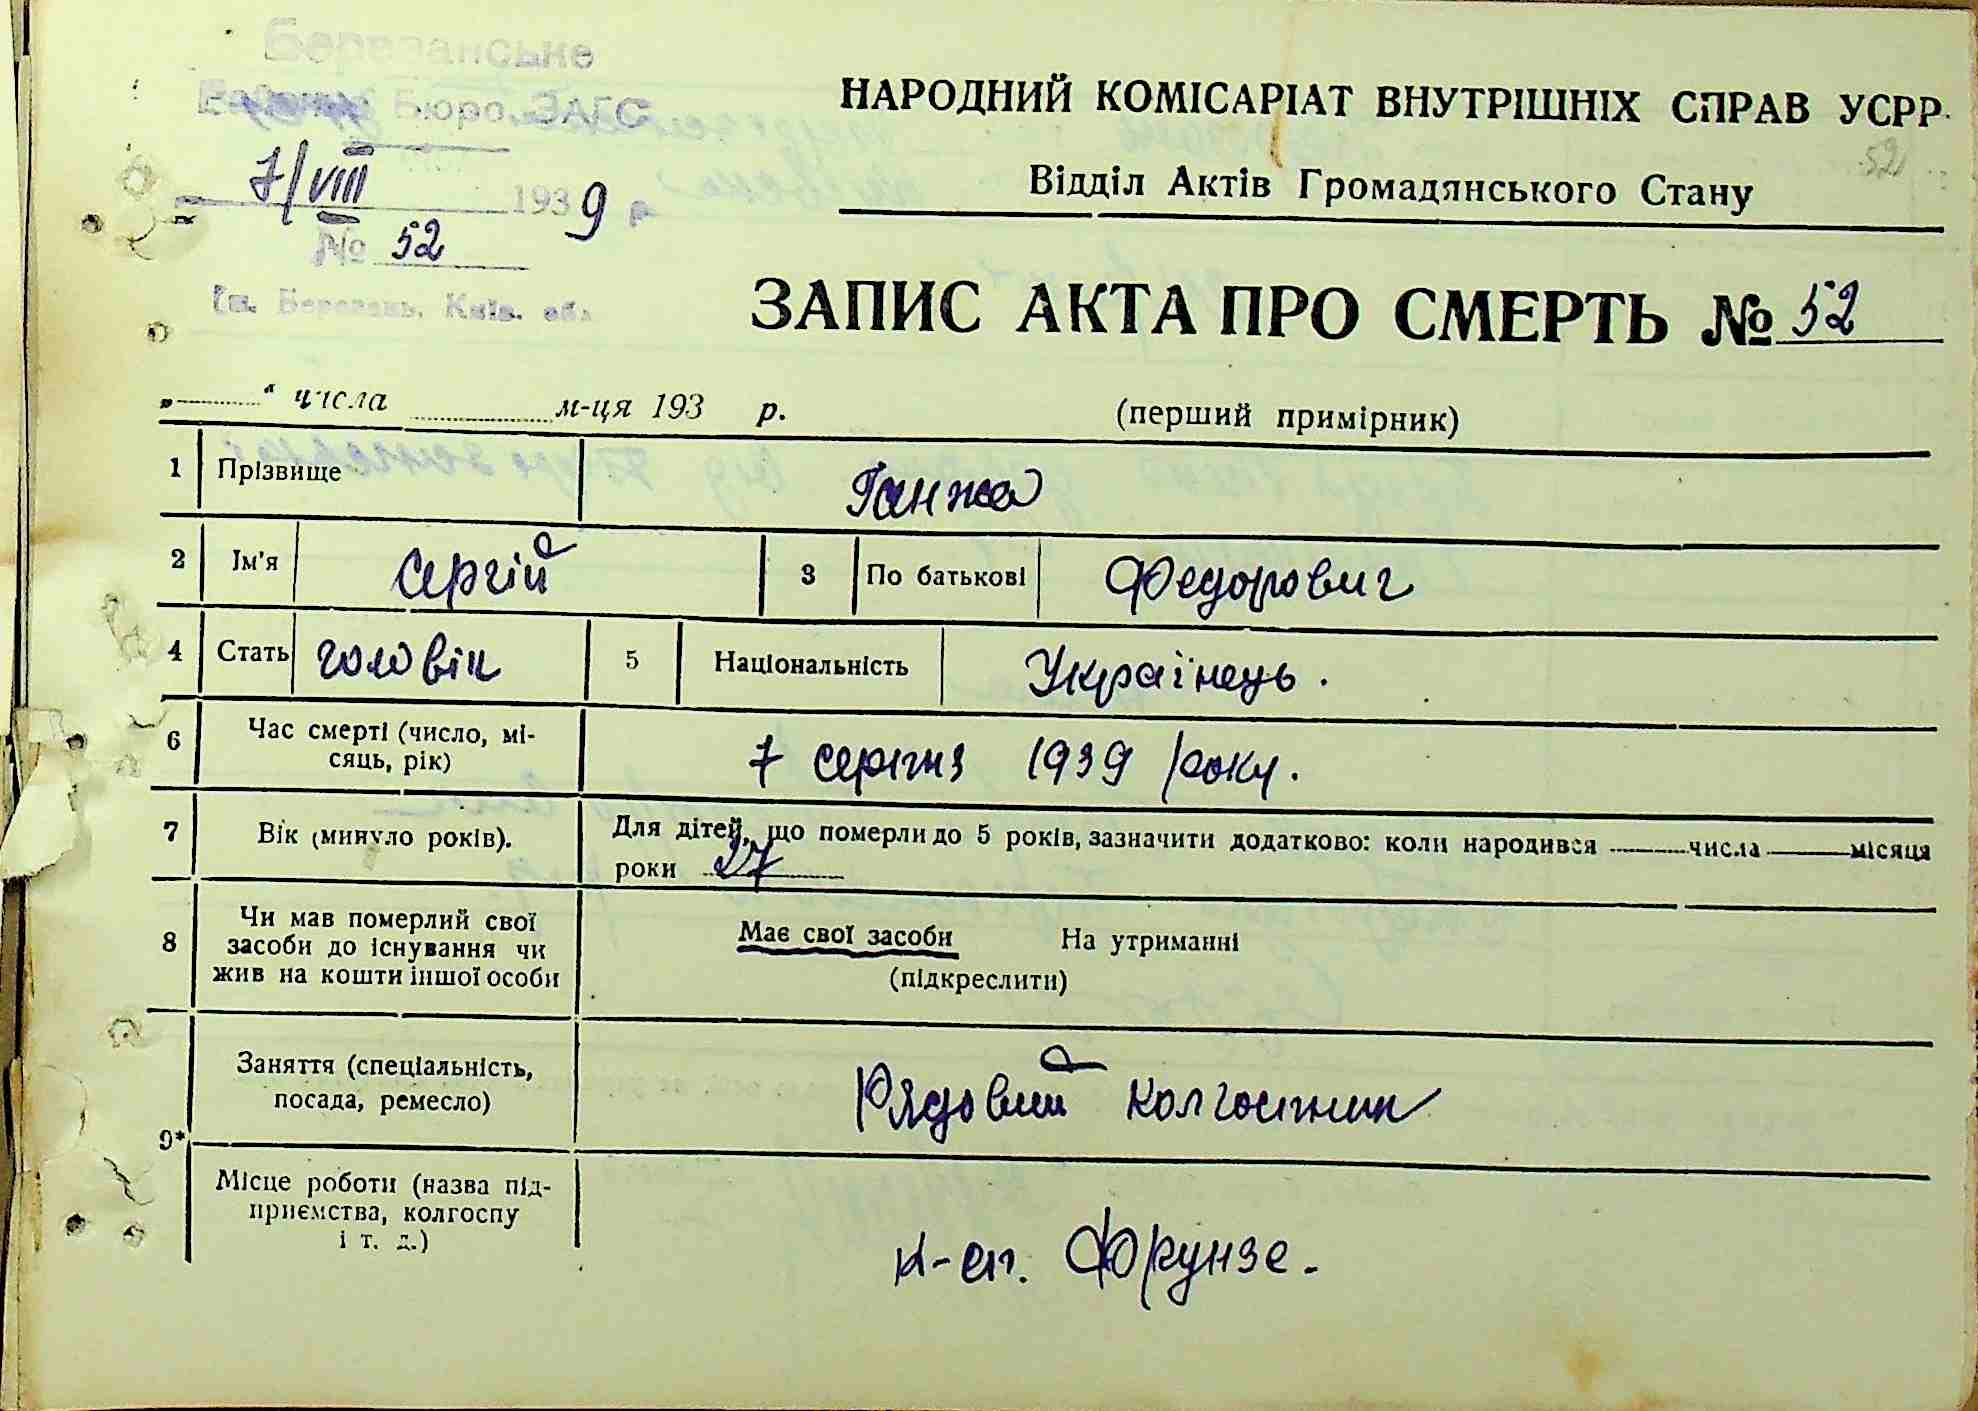 Березанське
Бюро ЗАГС
НАРОДНИЙ КОМІСАРІАТ ВНУТРІШНІХ СПРАВ УСРР
52
7/VIII 1939 р
Відділ Актів Громадянського Стану
№ 52
см. Березань. Київ. обл
ЗАПИС АКТА ПРО СМЕРТЬ № 52
„ “ числа м-ця 193 р. (перший примірник)
1 Прізвище Ганжа
2 Ім'я Сергій 3 По батькові Федорович
4 Стать чоловік 5 Національність Українець.
6 Час смерті (число, мі-
сяць, рік) 7 серпня 1939 року.
7 Вік (минуло років). Для дітей, що померли до 5 років, зазначити додатково: коли народився числа місяця
роки 27
8 Чи мав померлий свої
засоби до існування чи
жив на кошти іншої особи
Має свої засоби На утриманні
(підкреслити)
9* Заняття (спеціальність,
посада, ремесло) Рядовий колгоспник
Місце роботи (назва під-
приємства, колгоспу
і т. д.) к-сп. Фрунзе.